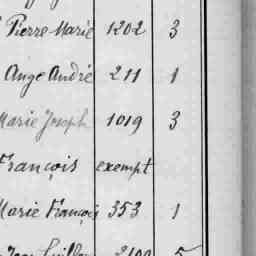 Pierre Marie 1202 3
Ange André 211 1
Marie Joseph 1019 3
François exempt
Marie François 353 1
2100 5